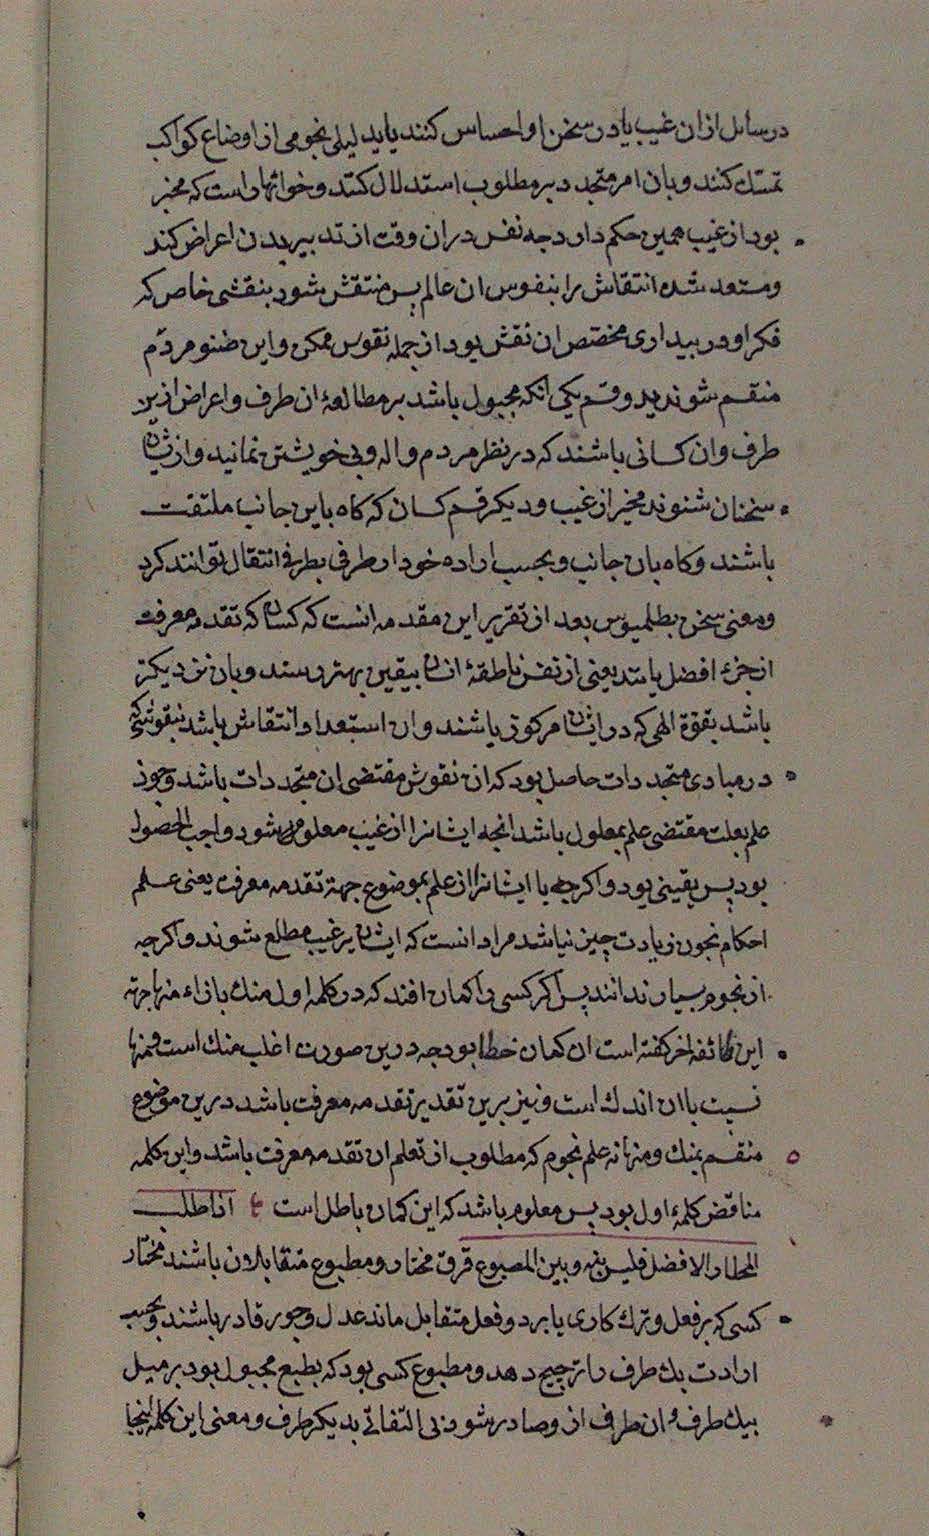 در سایل ازان غیب یا در سخن او احساس کنند یا بدلیلی نجومی از اوضاع کواکب
تمسّک کنند و بان امر متجدد بر مطلوب استدلال کنند و خوابها راست که مخبر
بود از غیب همین حکم دارد چه نفس دران وقت از تدبیر بدن اعراض کند
و مستعد شده انتقاش را بنفوس ان عالم پس منتقش شود بنقشی خاص که
فکر او در بیداری مختص ان نقش بود از جمله نقوس ممکن و این صنو مردم
منقسم شوند بدو قسم یکی انکه مجبول باشد بر مطالعهٔ ان طرف و اعراض ازین
طرف و ان کسانی باشند که در نظر مردم واله و بی خویشتن نمانید و ازیشان
سخنان شنوند مخبر از غیب و دیکر قسم کسان که کاه باین جانب ملتفت
باشند و کاه بان جانب و بحسب اراده خود از طرفی بطرفی انتقال توانند کرد
و معنی سخن بطلمیوس بعد از تقریر این مقدمه انست که کسان که تقدمه معرفت
از جزء افضل یابند یعنی از نفس ناطقهٔ انسان بیقین بهتر رسند و بان نزدیکتر
باشد بقوّة الهی که در ایشان مرکوز باشند و ان استعداد انتقاش باشد بنقوشیکه
در مبادی متجددات حاصل بود که ان نقوش مقتضی ان متجددات باشد و چون
علم بعلت مقتضی علم بمعلول باشد انچه ایشانرا از غیب معلوم شود واجب الحصول
بود پس یقینی بود و اکرچه با ایشانرا از علم بموضوع جهة تقدمه معرفت یعنی علم
احکام نجوم زیادت چیز نباشد مراد انست که ایشان بر غیب مطلع شوند و اکرچه
از نجوم بسیار ندانند پس اکر کسی را کمان افتد که در کلمه اول منك بازاء منها جهة
این طائفه اخر کفته است ان کمان خطا بود چه درین صورت اغلب منك است و منها
نسبت باان اندك است و نیز برین تقدیر تقدمه معرفت باشد درین موضوع
منقسم بمنك و منها نه علم نجوم که مطلوب از تعلم ان تقدمه معرفت باشد و این کلمه
مناقض کلمهٔ اول بود پس معلوم باشد که این کمان باطل است اذا طلب
المختار الافضل فلیس بینه و بین المطبوع فرق مختار و مطبوع متقابلان باشند مختار
کسی که بر فعل و ترك کاری یا بر دو فعل متقابل مانند عدل و جور قادر باشند و بحسب
ارادت یك طرف را ترجیح دهد و مطبوع کسی بود که بطبع مجبول بود بر میل
بیك طرف و ان طرف از و صادر شود بی التفاتی بدیکر طرف و معنی این کلمه اینجا